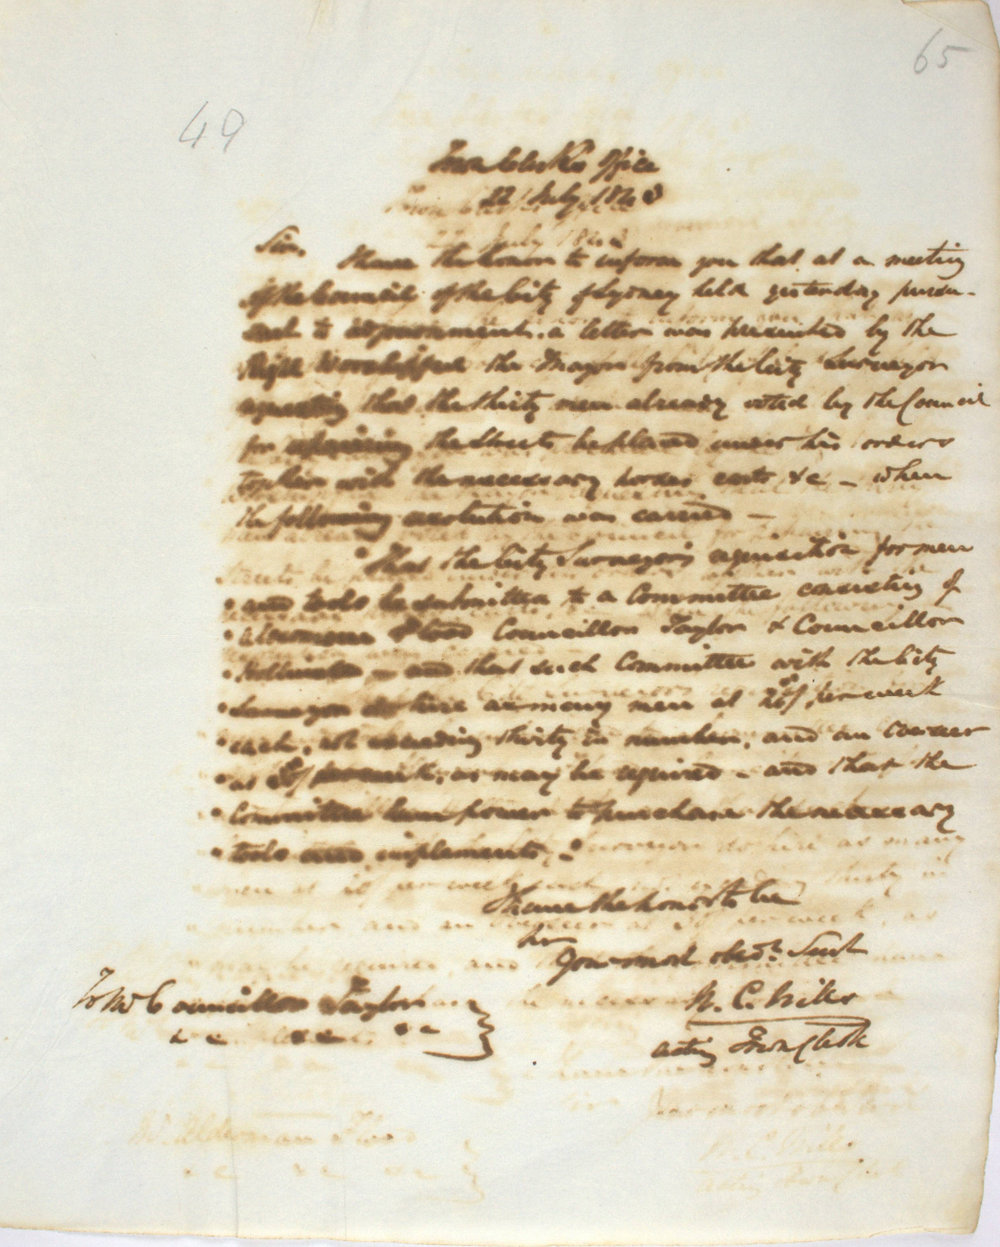 65
49
Town Clerk's Office
22 July 1843
Sir,
I have the honor to inform you that at a meeting
of the Council of the City of Sydney held yesterday pursu-
ant to adjournment, a letter was presented by the
Right Worshipful the Mayor from the City Surveyor
requesting that the thirty men already voted by the Council
for repairing the Streets be placed under his orders
together with the necessary horses carts &c – when
the following resolution was carried –
"That the City Surveyor's requisition for men
" and tools be submitted to a Committee consisting of
" Alderman Flood Councillor Taylor & Councillor
" – and that such Committee with the City
" Surveyor do hire as many men at per week
" each, not exceeding thirty in number, and an overseer
" as may be required – and that the
" Committee have power to purchase the necessary
" tools and implements."
I have the honor to be
Sir
Your most obedt. Servt
W. C. Wills
acting Town Clerk
To Mr Councillor Taylor
&c &c &c
Mr Alderman Flood
&c &c &c
W. C. Wills